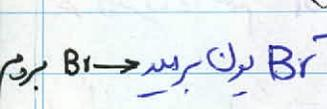 بروم Br → یون برمید Br⁻